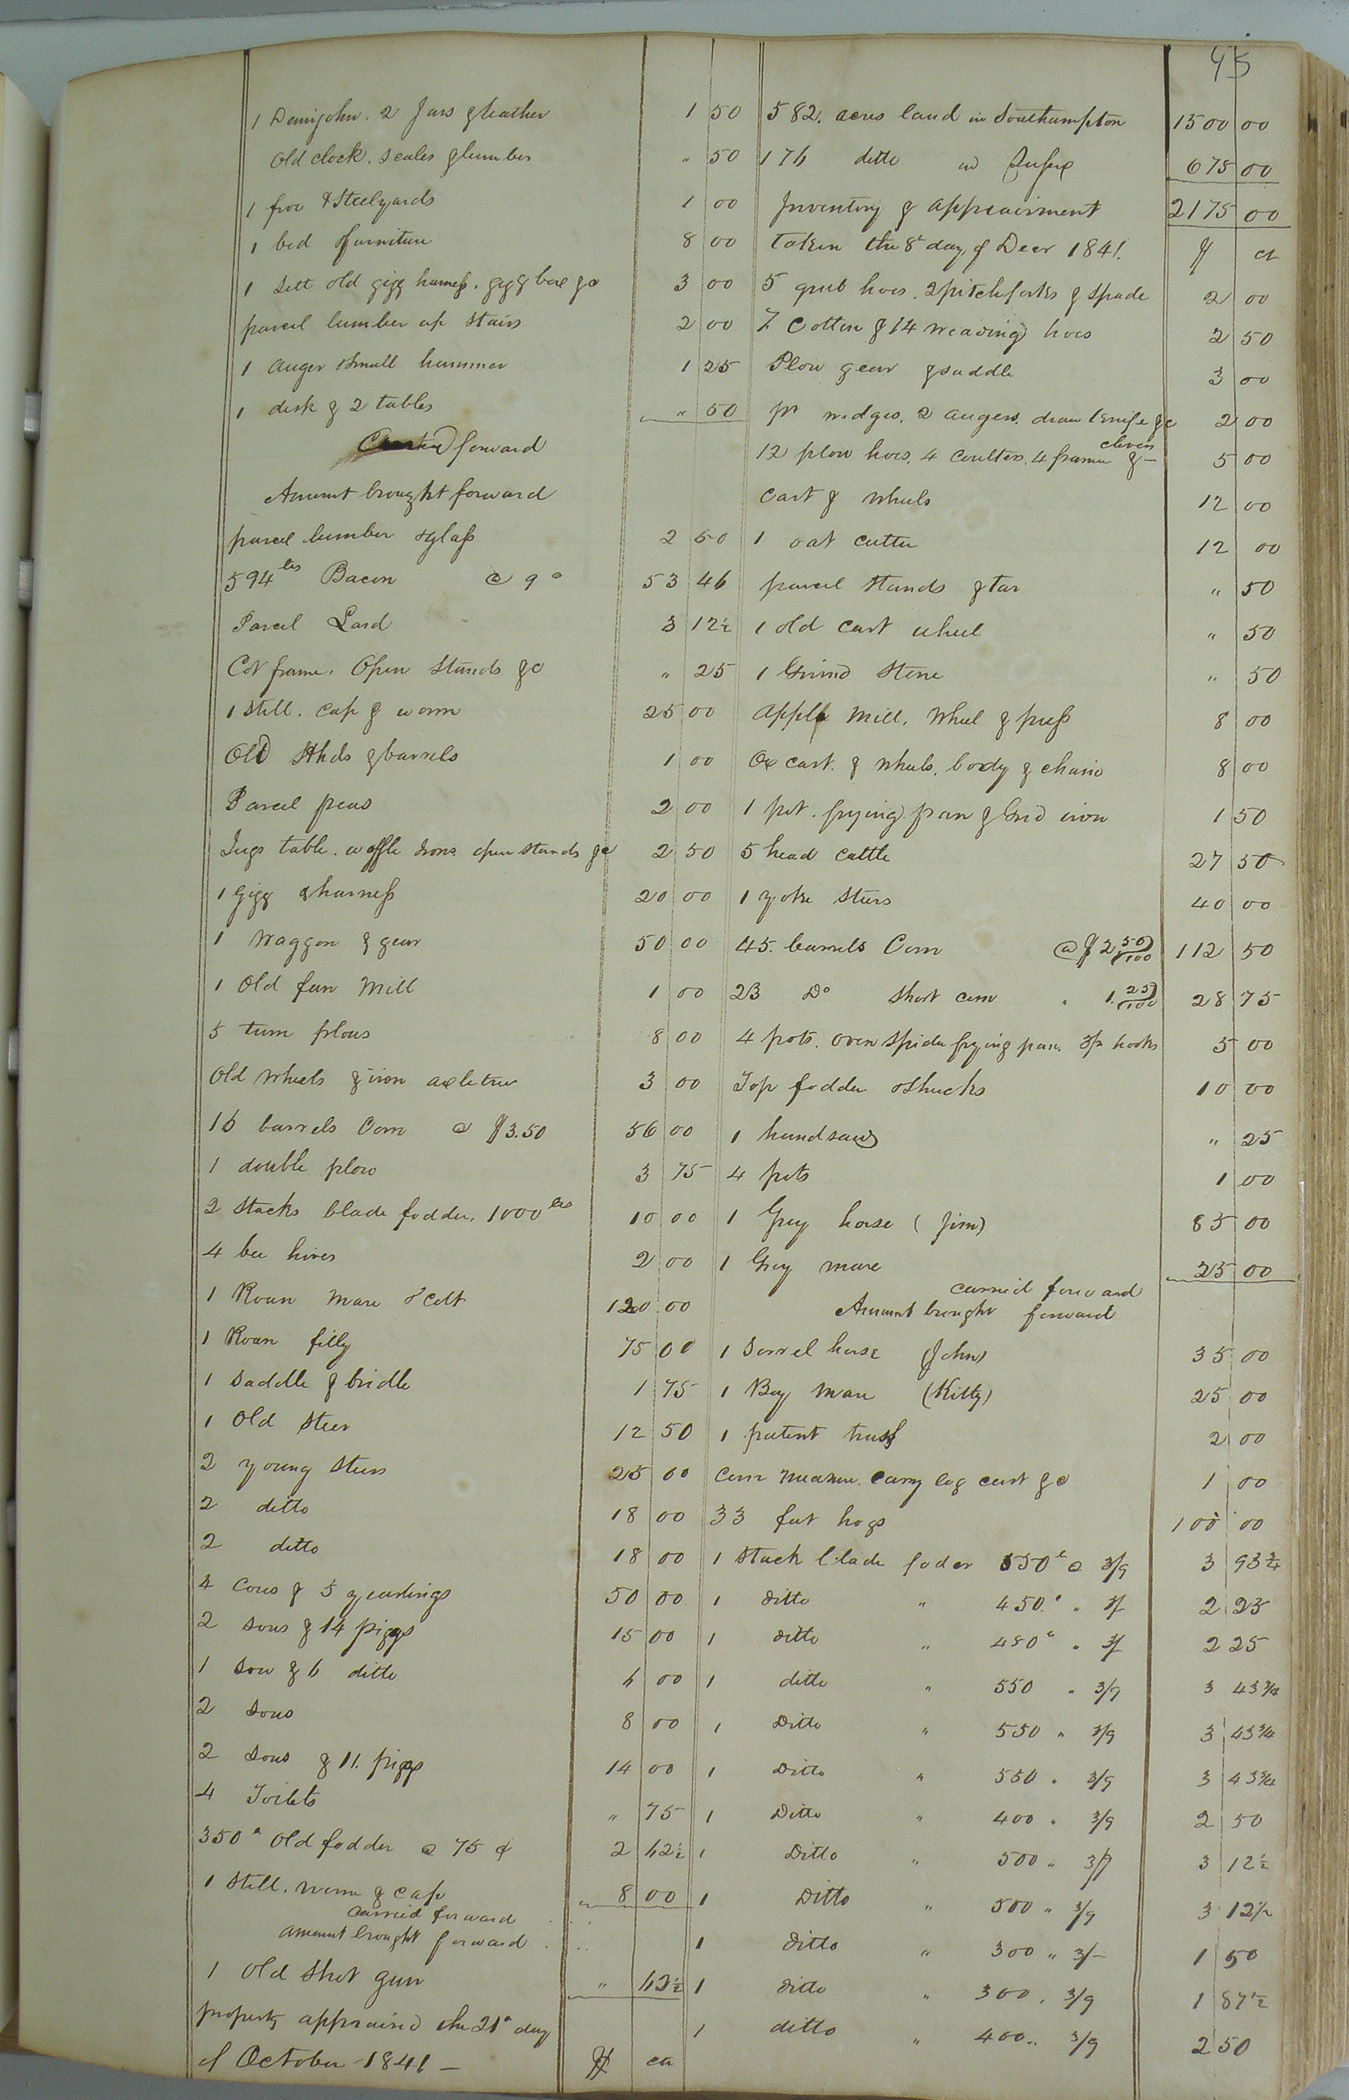 95
1 Demijohn. 2 Jars & leather 1 50
Old clock. Scales & lumber " 50
1 froe & Steelyards 1 00
1 bed & furniture 8 00
1 Sett old gigg harness. gigg box &c 3 00
parcel lumber up Stairs 2 00
1 auger & Small hammer 1 25
1 desk & 2 tables " 50
Carried forward
Amount brought forward
parcel lumber & glass 2 50
594 lbs Bacon @ 9 c 53 46
Parcel Lard 3 12½
Cot frame. Open Stands &c " 25
1 Still. cap & worm 25 00
Old Hhds & barrels 1 00
Parcel peas 2 00
Jugs table. waffle Irons open stands &c 2 50
1 Gigg & harness 20 00
1 Waggon & gear 50 00
1 Old fan Mill 1 00
5 turn plows 8 00
Old Wheels & iron axletree 3 00
16 barrels Corn @ $3.50 56 00
1 double plow 3 75
2 Stacks blade fodder. 1000 lbs 10 00
4 bee hives 2 00
1 Roan Mare & Colt 120 00
1 Roan filly 75 00
1 Saddle & bridle 1 75
1 Old Steer 12 50
2 young Steers 25 00
2 ditto 18 00
2 ditto 18 00
4 Cows & 5 yearlings 50 00
2 Sows & 14 piggs 15 00
1 Sow & 6 ditto 6 00
2 Sows 8 00
2 Sows & 11. piggs 14 00
4 Toilets " 75
350 " Old fodder @ 75 ¢ 2 62½
1 Still. Worm & Cap " 8 00
carried forward
amount brought forward
1 Old Shot gun " 62½
property appraised the 21st day
of October 1841 — $ cts
582. acres land in Southampton 1500 00
176 ditto in Sussex 675 00
Inventory & Appraisment 2175 00
Taken the 8th day of Decr 1841. $ ct
5 grub hoes. 2 pitchforks & Spade 2 00
7 Cotton & 14 weading hoes 2 50
Plow gear & saddle 3 00
pr wedges. 2 augers. draw knife &c 2 00
12 plow hoes. 4 Coulters. 4 frames clevis &— 5 00
Cart & Wheels 12 00
1 oat cutter 12 00
parcel Stands & tar " 50
1 old Cart wheel " 50
1 Grind Stone " 50
Apple Mill. Wheel & press 8 00
Ox cart. & Wheels. body & chain 8 00
1 pot. frying pan & Grid iron 1 50
5 head Cattle 27 50
1 yoke Steers 40 00
45. barrels Corn @ $2 50/100 112 50
23 Do Short corn " 1. 25/100 28 75
4 pots. oven Spider frying pan. 3 pr hooks 5 00
Top fodder & Shucks 10 00
1 handsaw " 25
4 pots 1 00
1 Grey horse (Jim) 85 00
1 Grey mare 25 00
carried forward
Amount brought forward
1 Sorrel horse (John) 35 00
1 Bay Mare (Kitty) 25 00
1 patent truss 2 00
Corn measure. Carry log cart &c 1 00
33 fat hogs 100 00
1 Stack blade foder 550 " @ 3/9 3 93¾
1 ditto " 450 " " 3/ 2 25
1 ditto " 450 " " 3/ 2 25
1 ditto " 550 " 3/9 3 43¾
1 Ditto " 550 " 3/9 3 43¾
1 Ditto " 550 " 3/9 3 43¾
1 Ditto " 400 " 3/9 2 50
1 Ditto " 500 " 3/9 3 12½
1 Ditto " 500 " 3/9 3 12½
1 ditto " 300 " 3/- 1 50
1 ditto " 300 " 3/9 1 87½
1 ditto " 400 " 3/9 2 50